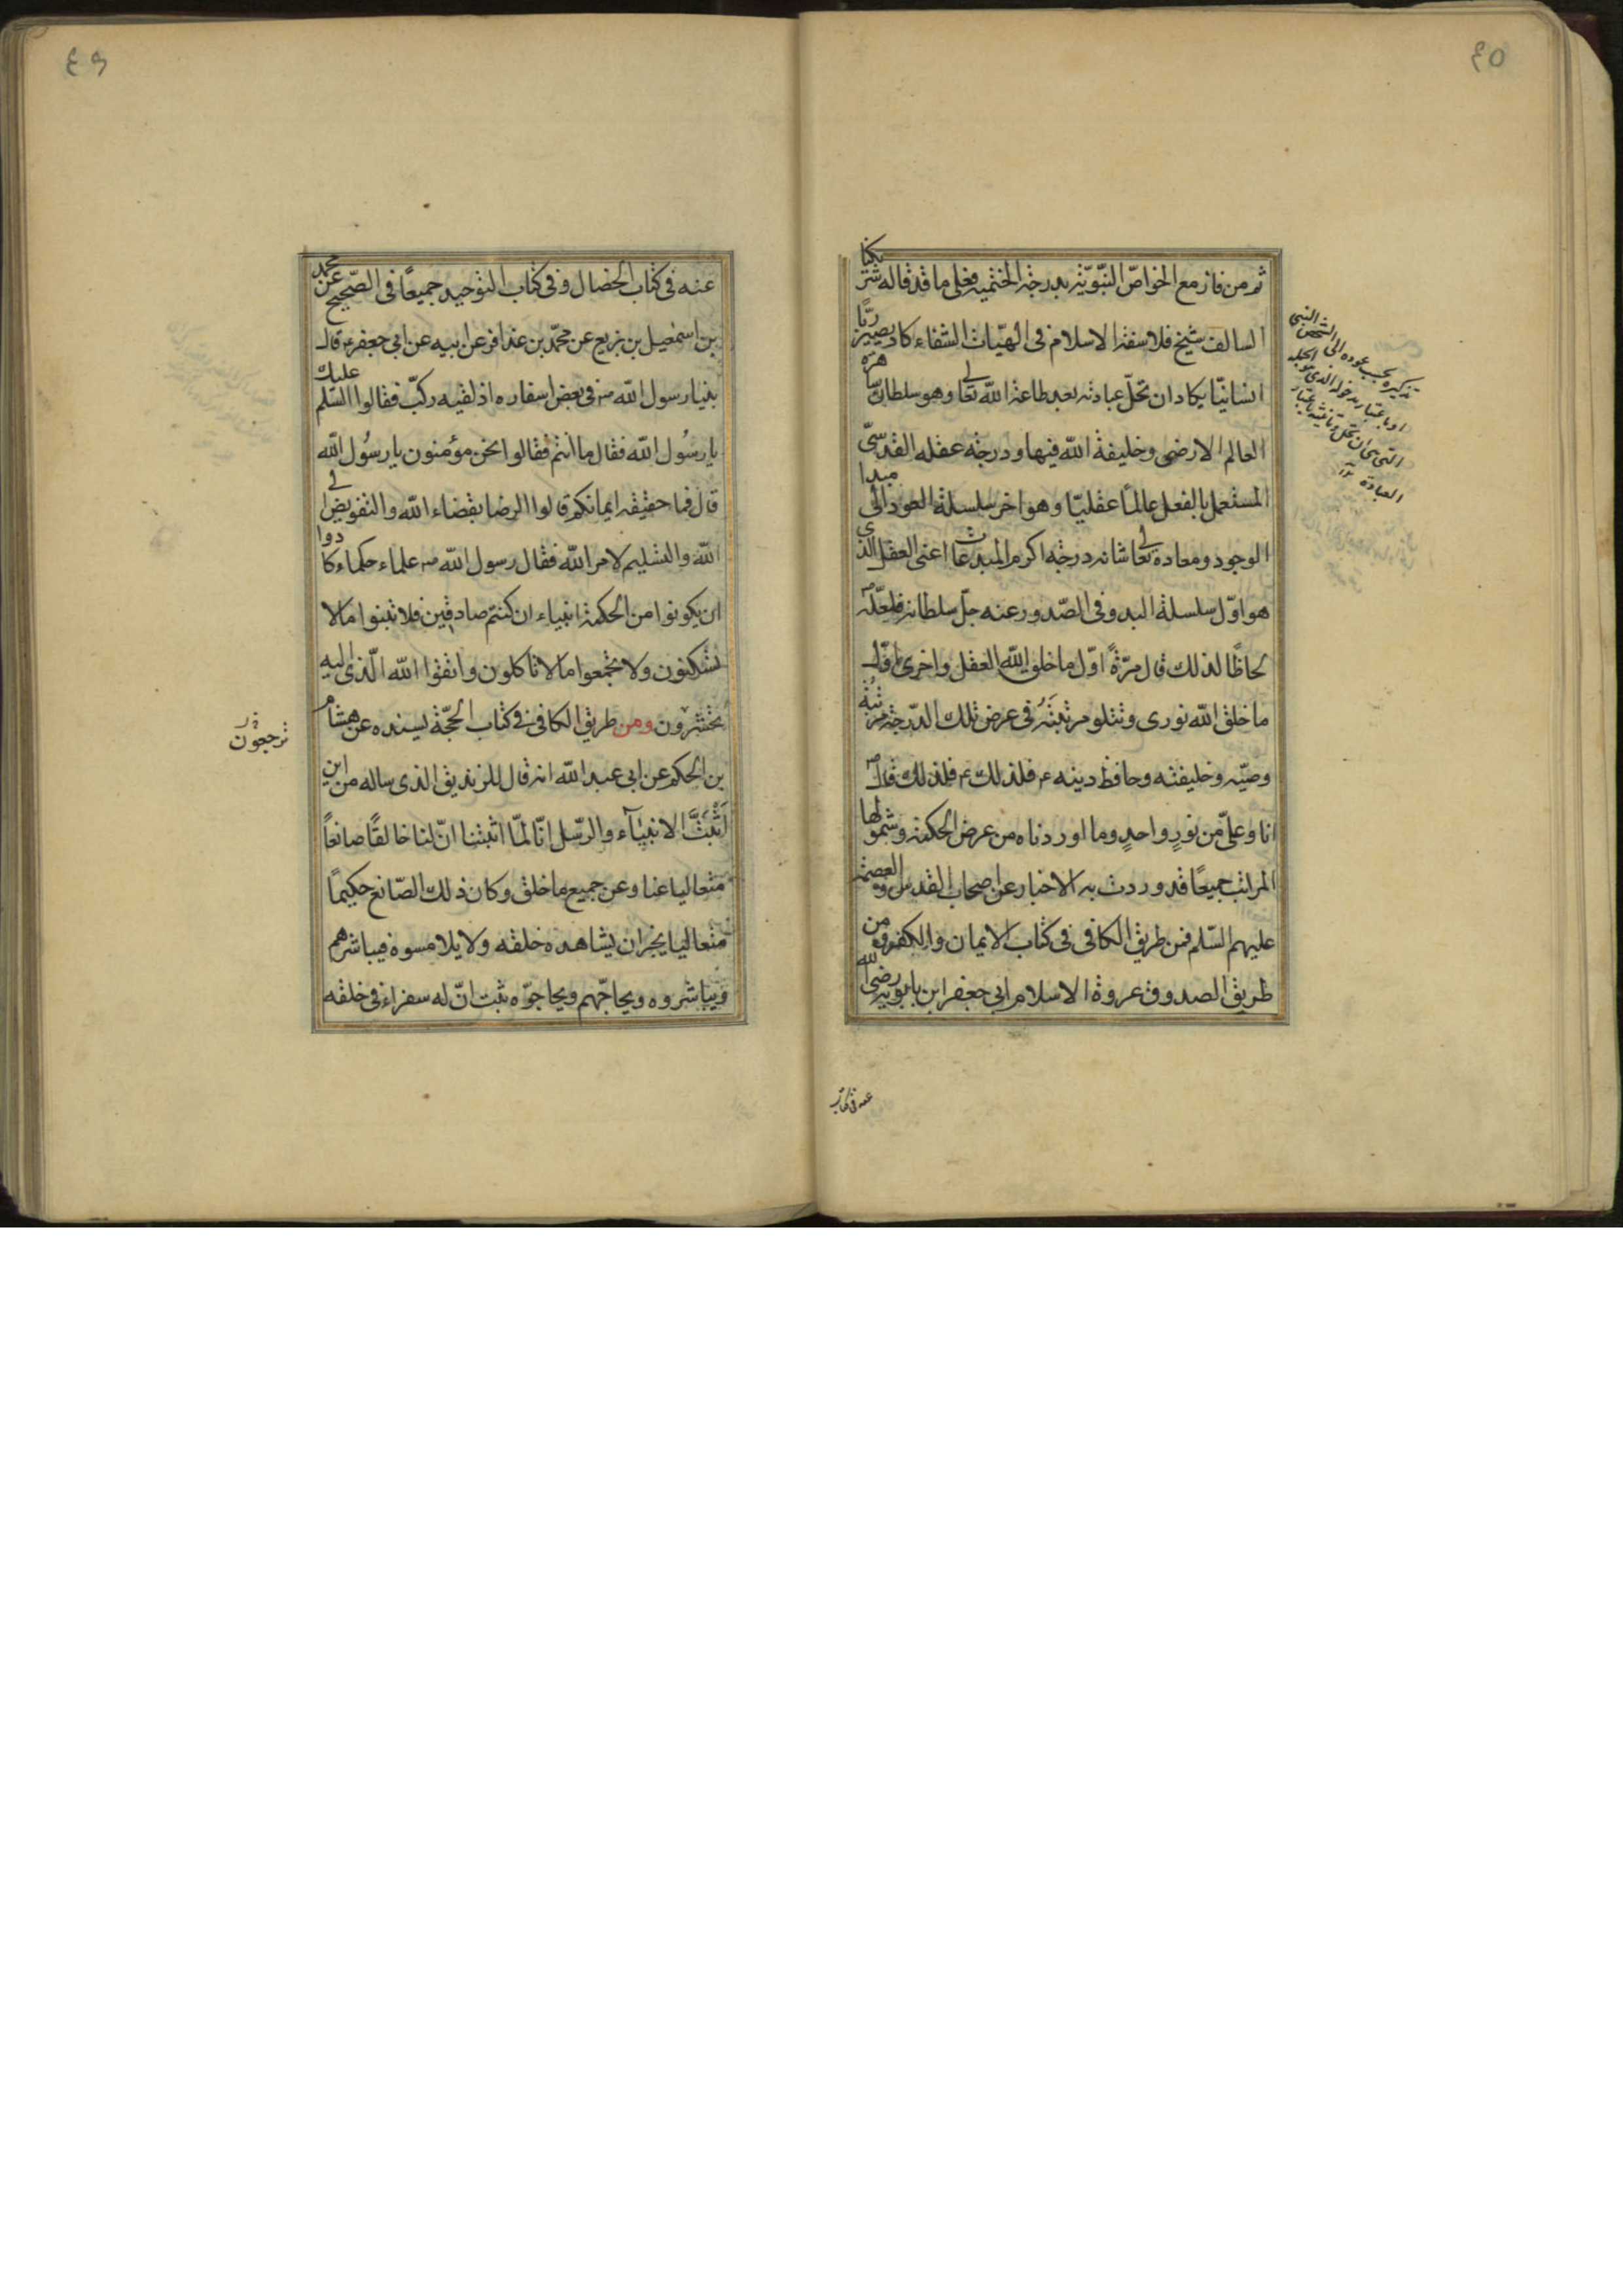 ٤٥
ثم من فاز مع الخواصّ النّبوّيّة بدرجة الختمية فعلى ما قد قاله شريكنا
السالف شيخ فلاسفة الاسلام فى الهيّات الشفاء كاد يصير ربّا
انسانيّا يكاد ان تحلّ عبادته بعد طاعة الله تعالى وهو سلطان
العالم الارضى وخليفة الله فيها ودرجة عقله القدسىّ
المستعمل بالفعل عالمًا عقليّا وهو اخر سلسلة العود الى مبدا
الوجود ومعاده تعالى شانه درجة اكرم المبدعات اعنى العقل الذى
هو اوّل سلسلة البدو فى الصّدور عنه جلّ سلطانه فلعلّه ص
لحاظًا لذلك قال مرّةً اوّل ما خلق الله العقل واخرى اوّل
ما خلق الله نورى وتتلو مرتبتهُ فى عرض تلك الدّرجة مرتبة
وصيّه وخليفته وحافظ دينه ع فلذلك ع فلذلك قال ص
انا وعلىّ من نورٍ واحدٍ وما اوردناه من عرض الحكمة وشمولها
المراتب جميعًا قد وردت به الاخبار عن اصحاب القدس والعصمة
عليهم السّلم فمن طريق الكافى فى كتاب الايمان والكفر ومن
طريق الصدوق عروة الاسلام ابى جعفر ابن بابويه رضى الله
تذكيره بحسب عوده الى الشخص النبى
عنه فى كتاب
٤٩
عنه فى كتاب الخصال وفى كتاب التوحيد جميعًا فى الصّحيح عن محمد
بن اسمعيل بن بزيع عن محمّد بن عذافر عن ابيه عن ابى جعفر ع قال
بنيا رسول الله ص فى بعض اسفاره اذ لقيه ركبٌ فقالوا السّلم عليك
يا رسُول الله فقال ما انتم فقالوا نحن مؤمنون يا رسُول الله
قال فما حقيقة ايمانكم قالوا الرضا بقضاء الله والتفويض الى
الله والتسليم لامر الله فقال رسول الله ص علماء حكماء كادوا
ان يكونوا من الحكمة انبياء ان كنتم صادقين فلا تبنوا ما لا
تسكنون ولا تجمعوا ما لا تاكلون واتقوا الله الّذى اليه
تحشرون ومن طريق الكافى فى كتاب الحجّة بسنده عن هشام
ترجعون
بن الحكم عن ابى عبد الله انه قال للزنديق الذى ساله من اين
اثبتَّ الانبيآء والرّسل انّا لمّا اثبتنا انّ لنا خالقًا صانعاً
متعاليا عنا وعن جميع ما خلق وكان ذلك الصّانع حكيمًا
متعاليا يجز ان يشاهده خلقه ولا يلامسوه فيباشرهم
ويباشروه ويحاجّهم ويحاجوّه ثبت انّ له سفراء فى خلقه